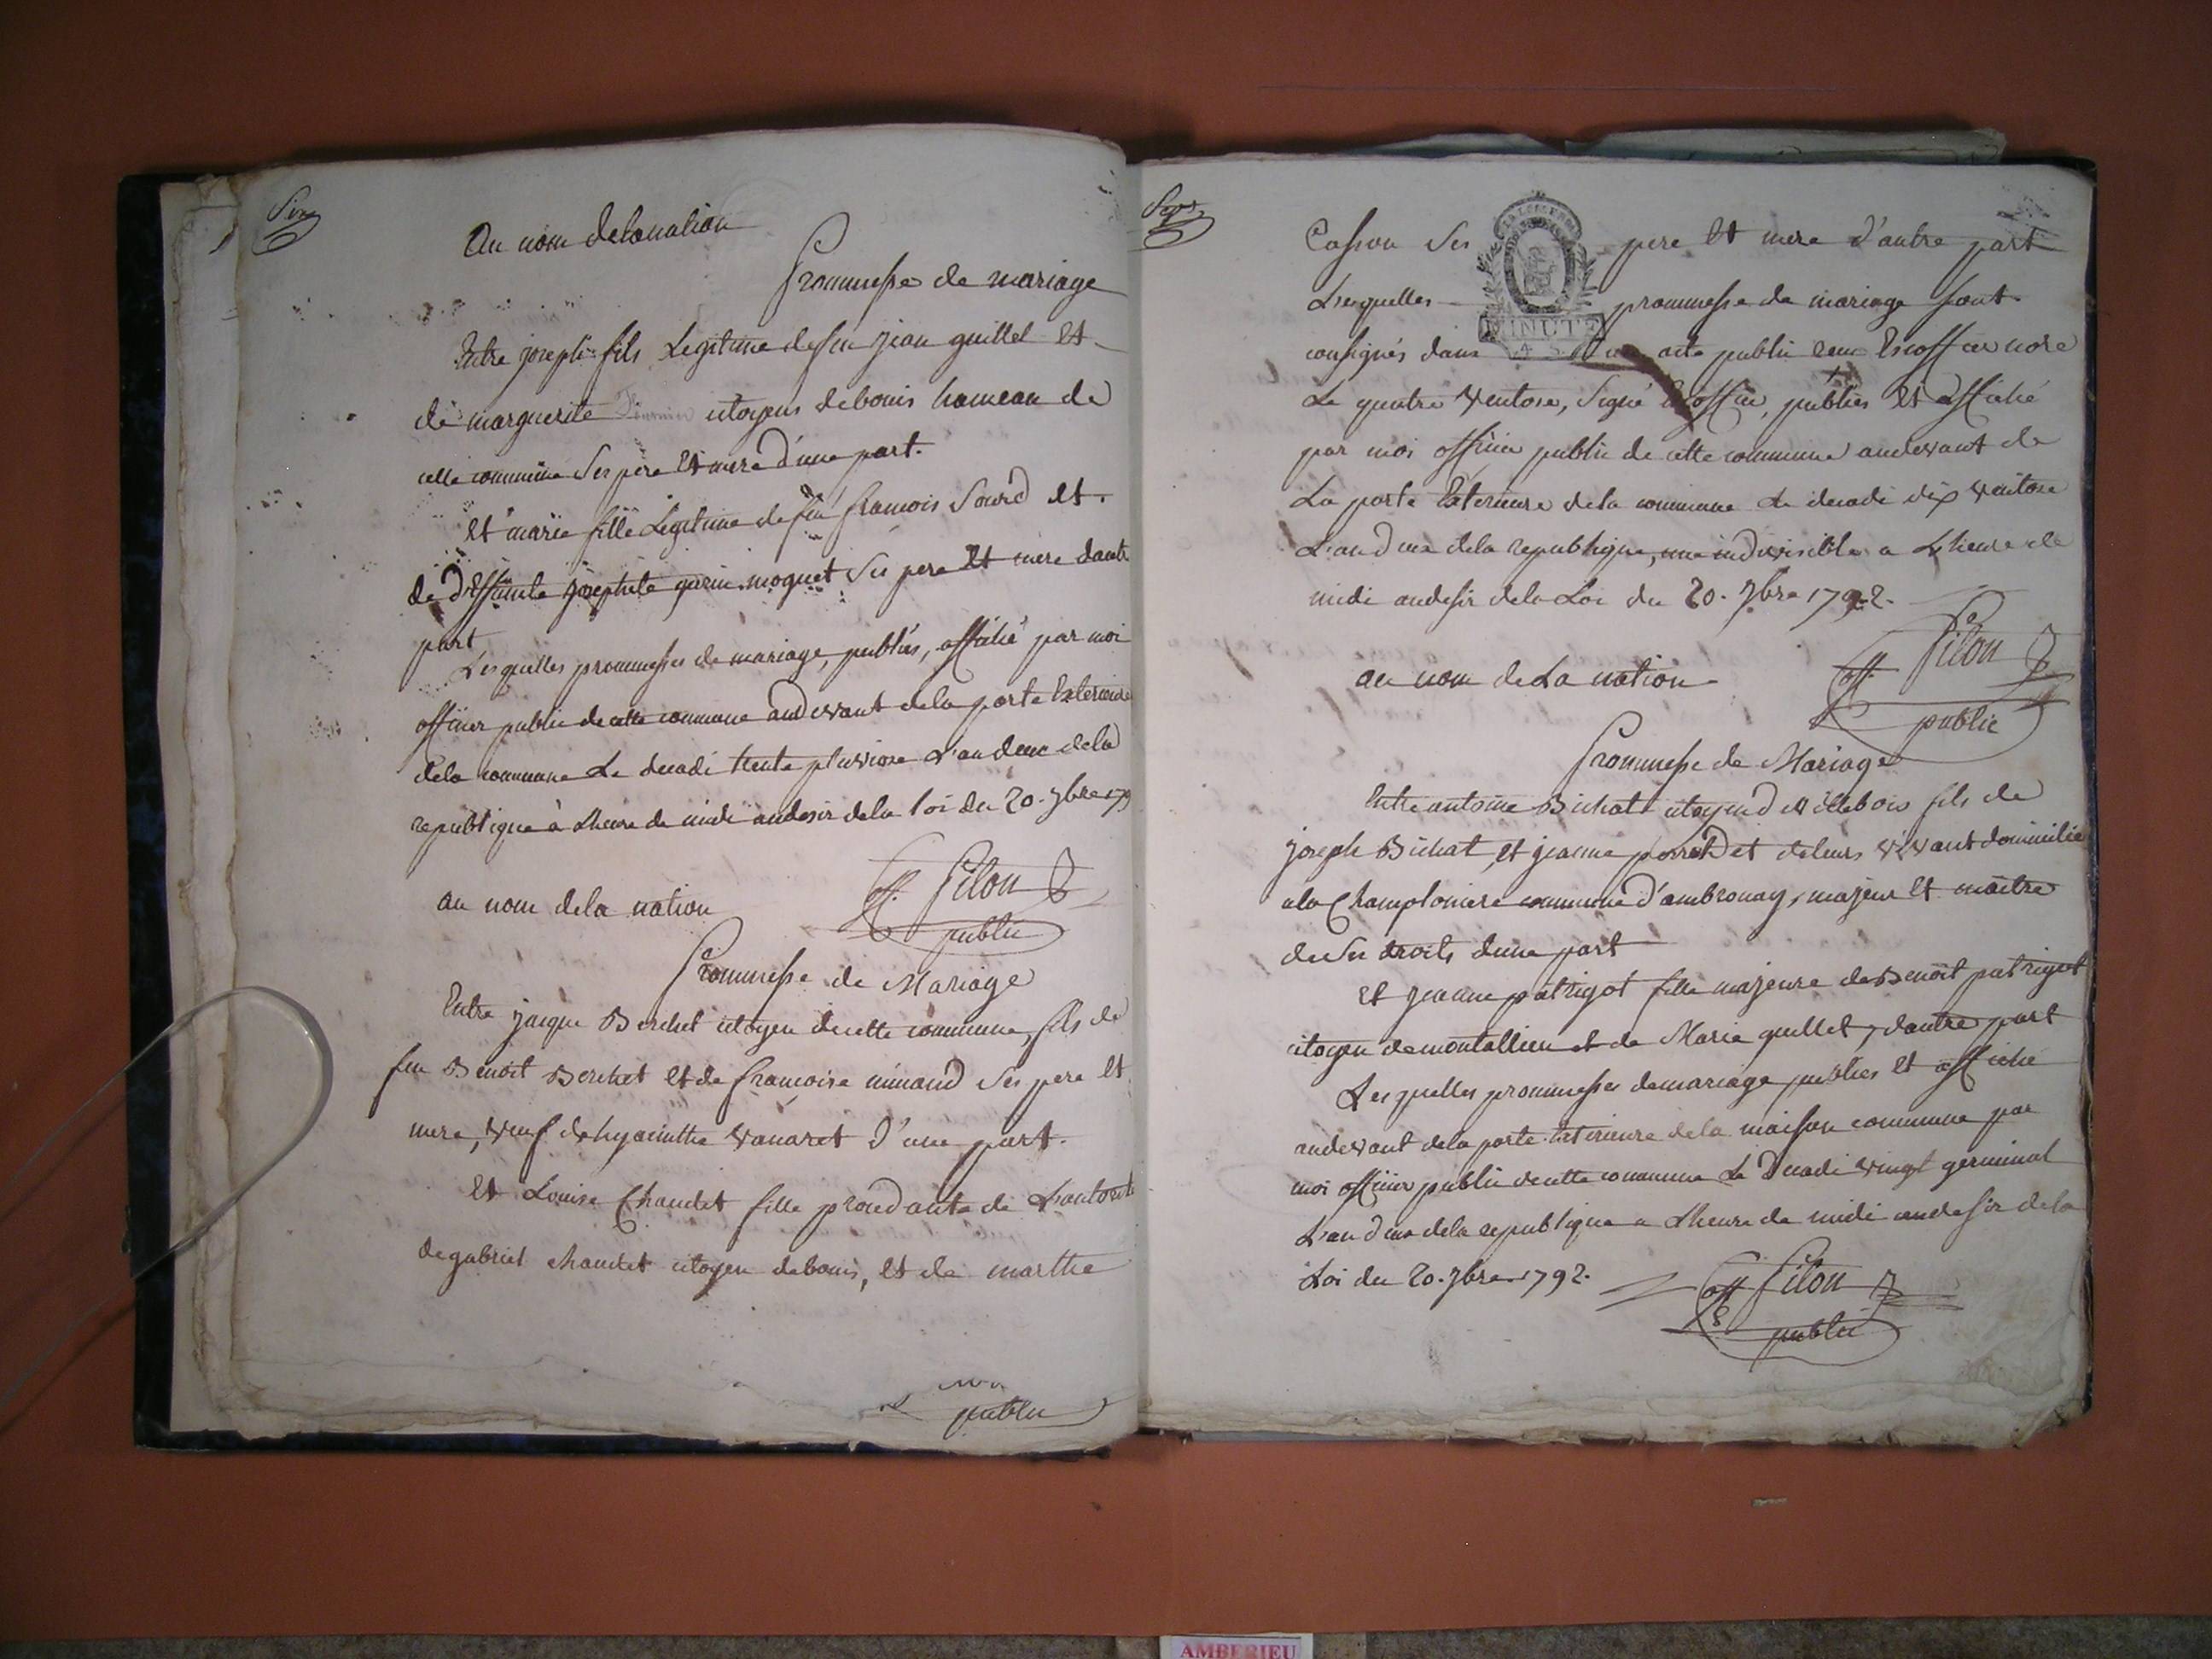 Six
Au nom delanation
Prommesse de mariage
Entre joseph fils Legitime defeu jean guillet et
de marguerite citoyens debouis hameau de
cette commune Ses pere et mere d'une part.
et marie fille Legitime de feu francois Sourd et
de deffunte josephete guerin moguet Ses pere et mere dautre
part
Lesquelles prommesses de mariage, publiés, affiché par moi
officier public de cette commune audevant dela porte Exterieure
dela commune Le decadi trente pluviose L'an deux dela
republique à Lheure de midi audesir dela loi du 20. 7bre 179
au nom dela nation
off. pilon
public
Prommesse de Mariage
Entre jacque Berchet citoyen decette commune, fils de
feu Benoit Berchet et de francoise minaud Ses pere et
mere, veuf dehyacinthe vanaret d'une part.
et Louise Chaudet fille procedante de L'autorité
degabriel chaudet citoyen debouis, et de marthe
public
Sept
Casson Ses pere et mere d'autre part
Lesquelles prommesse de mariage sont
MINUTE
consignés dans acte public recu Escoffier nore
Le quatre ventose, Signé Escoffier, publiés et affiché
par moi officier public de cette commune audevant de
La porte Exterieure dela commune Le decadi dix ventose
L'an deux dela republique, une indivisible a Lheure de
midi audesir dela Loi du 20. 7bre 1792.
pilon
off.
public
au nom de La nation
Prommesse de Mariage
Entre antoine Bichat citoyen d villebois fils de
joseph Bichat, et jeanne perrodet deleurs vivant domicilié
ala Champloniere commune d'ambronay, majeur et maitre
deses droits dune part
et jeanne patrigot fille majeure deBenoit patrigot
citoyen demontallieu et de Marie guillet, dautre part
Lesquelles prommesses demariage publiés et affiché
audevant dela porte Exterieure dela maison commune par
moi officier public decette commune Le Decadi vingt germinal
L'an deux dela republique a Lheure de midi audesir dela
Loi du 20. 7bre 1792.
off pilon
public
AMBERIEU